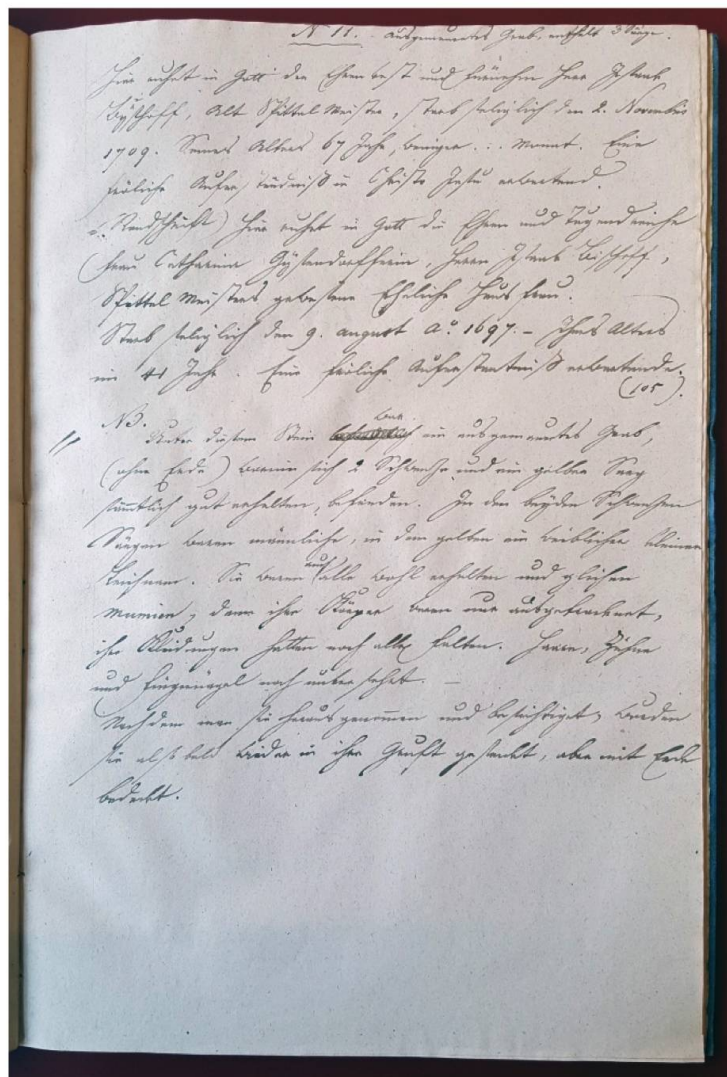 N° 11. Ausgemauertes Grab, enthält 3 Särge.
Hier ruhet in Gott der Ehrenvest und Fürnehm Herr Isaak
Byschoff, Alt Spittel Meister, starb seliglich den 2. Novembris
1709. Seines Alters 67 Jahr, weniger .:. Monnt. Eine
fröliche Auferständniß in Christo Jesu erwartend.
Randschrift) Hier ruhet in Gott die Ehren und Tugendreiche
Frau Catharina Gysendörfferin, Herrn Isaak Bischoff,
Spittel Meisters gewesene Eheliche Hausfrau.
Starb seliglich den 9. August A.° 1697. – Ihres Alters
im 41 Jahr. Eine fröliche Auferstantniß erwartende.
(105).
NB. war
Unter diesem Stein ein ausgemauertes Grab,
(ohne Erde) worin sich 2 Schwarze und ein gelber Sarg
sämmtlich gut erhalten, befanden. In den beyden Schwarzen
Särgen waren männliche, in dem gelben ein weiblicher kleiner
Leichnam. Sie waren auch alle wohl erhalten und glichen
Mumien, denn ihre Körper waren nur ausgetrocknet,
ihre Kleidungen hatten noch alle Falten. Haare, Zähne
und Fingernägel noch unversehrt. –
Nachdem man sie herausgenommen und besichtiget, wurden
sie alsobald wieder in ihre Gruft gesenkt, aber mit Erde
bedeckt.